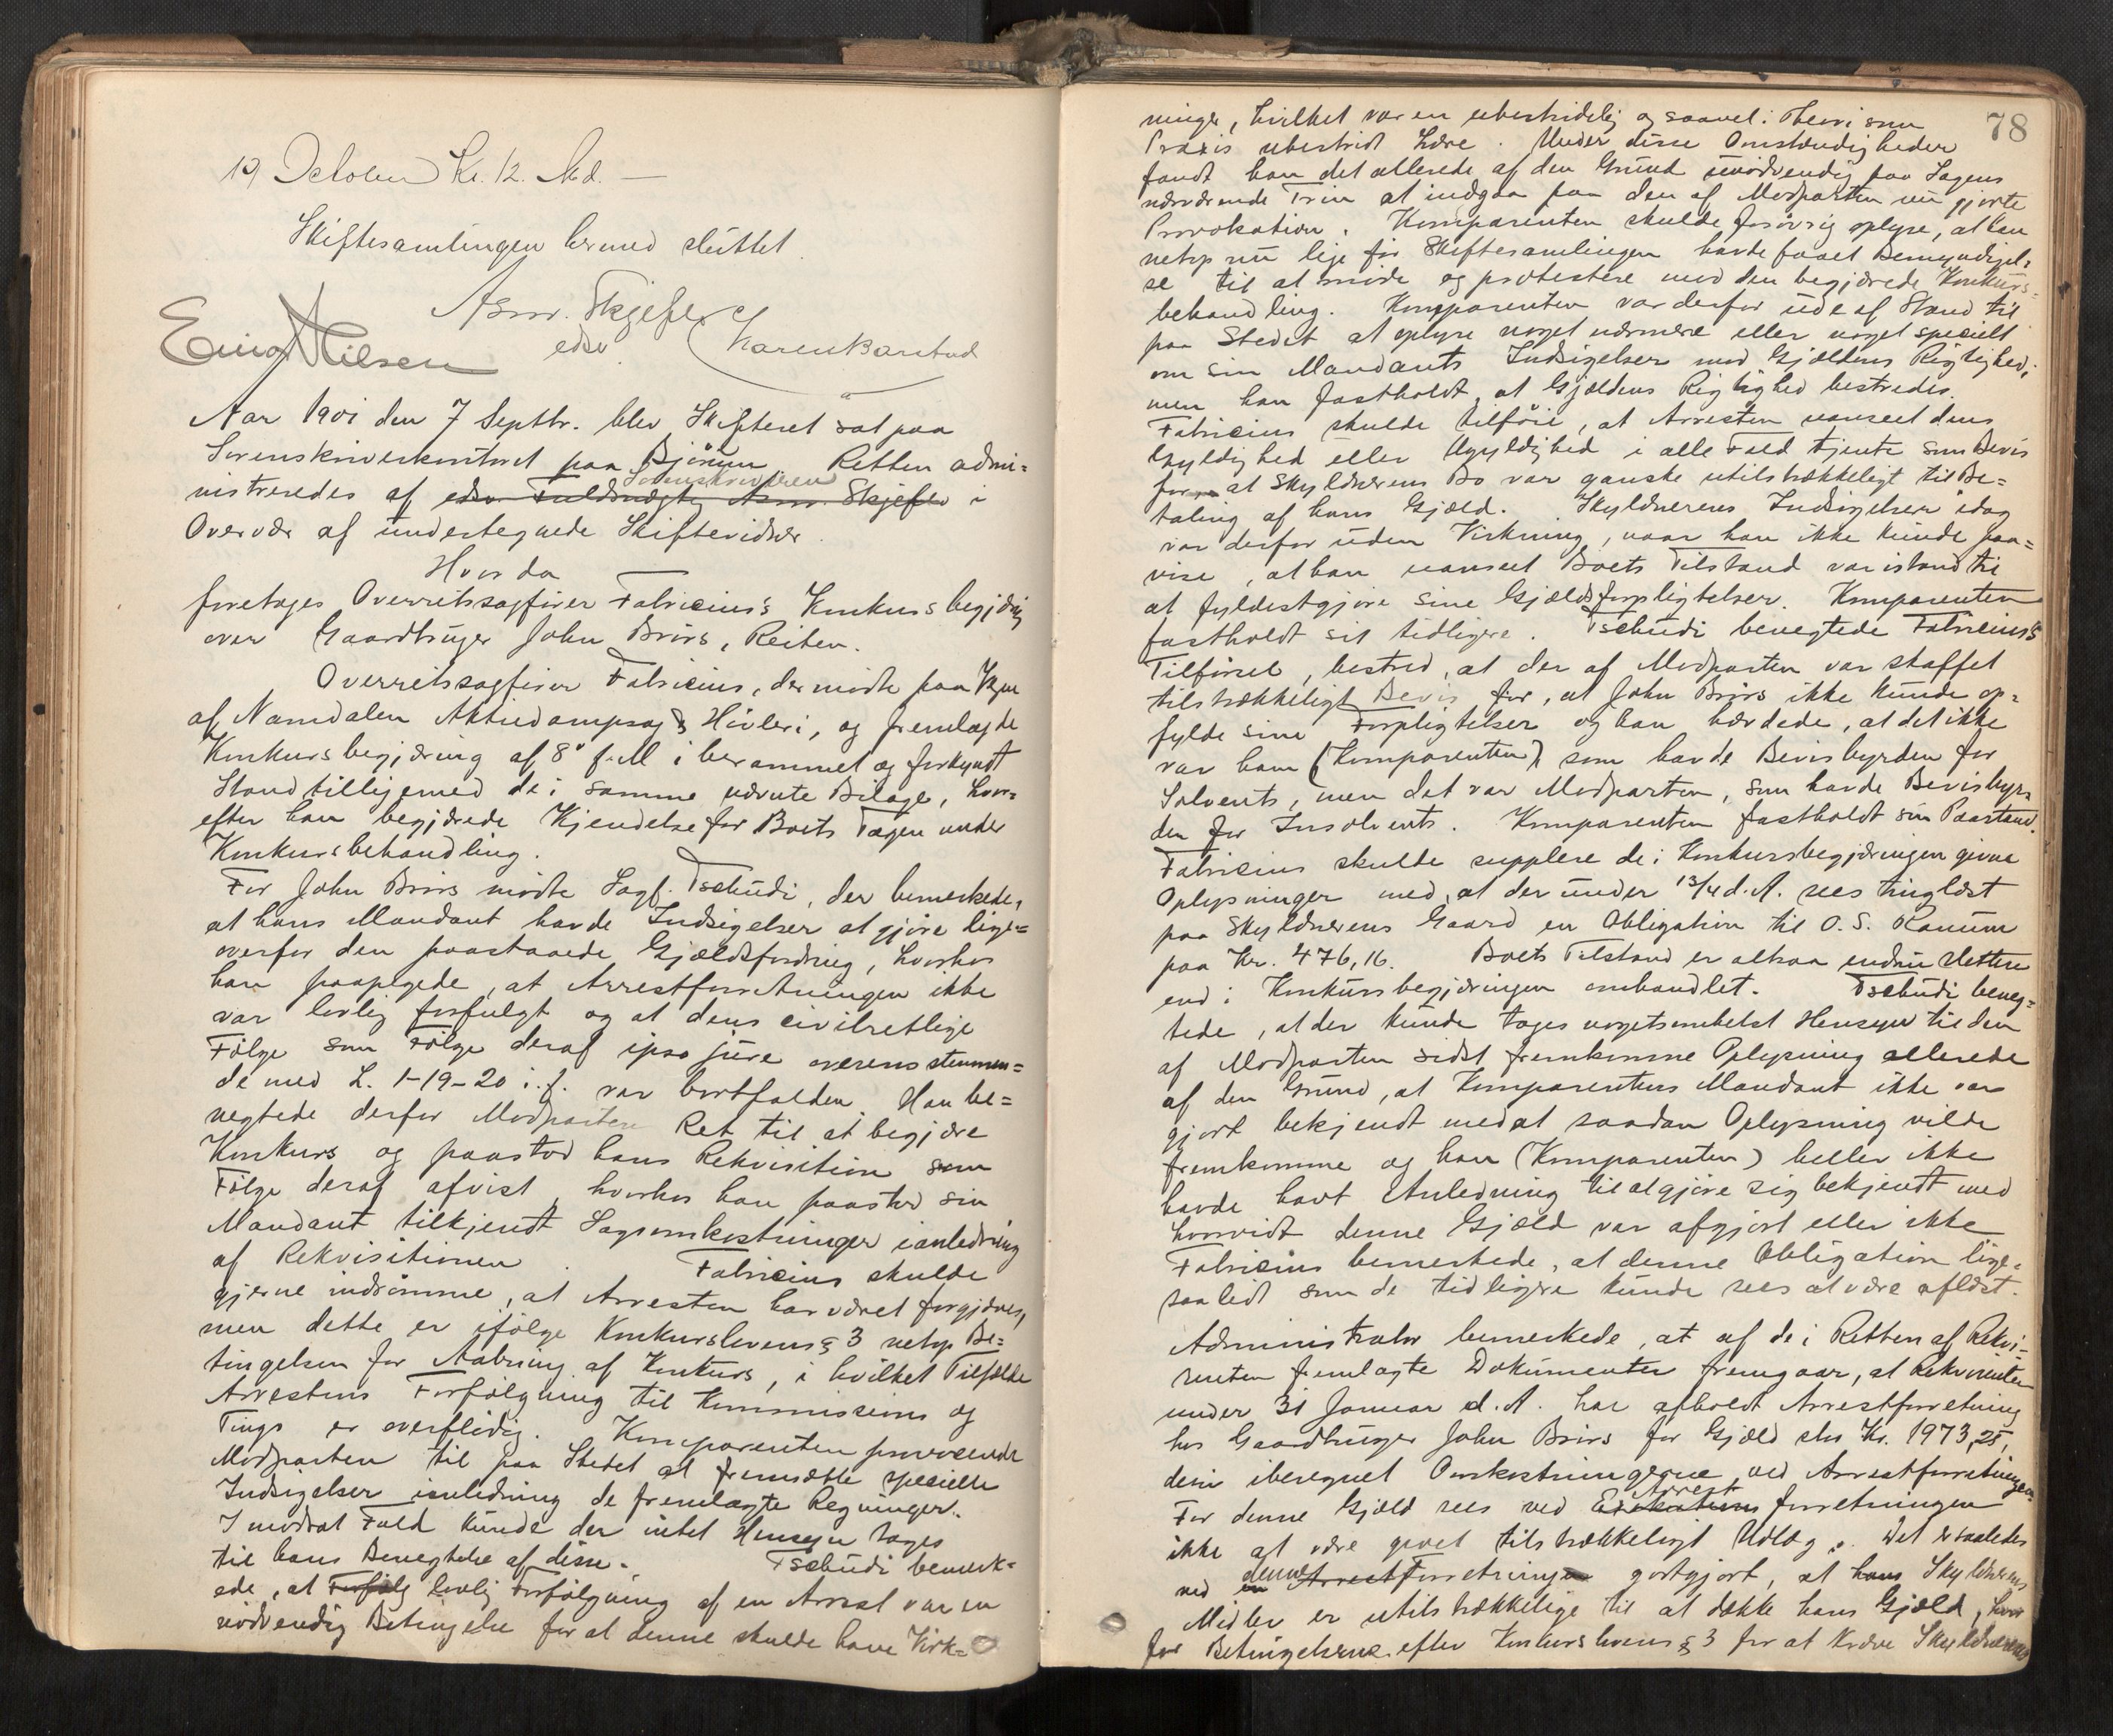 19 October Kl. 12. Md. —
Skiftesamlingen hermed sluttet.
Asm. Skjefte
Einar Nilsen edsv. Karen Barstad
Aar 1901 den 7 Septbr. blev Skifteret sat paa
Sorenskriverkontoret paa Bjørum. Retten admi=
Sorenskriveren
nistreredes af edsv. Fuldmægtig Asm. Skjefte i
Overvær af undertegnede Skiftevidner.
Hvorda
foretoges Overretssagfører Fabricius's Konkursbegjæring
over Gaardbruger John Brørs, Reiten.
Overretssagfører Fabricius, der mødte paa Vegne
af Namdalen Aktiedampsag & Høvleri, og fremlagde
Konkursbegjæring af 8de f. M i berammet og forkyndt
Stand tilligemed de i samme nævnte Bilage, hvor=
efter han begjærede Kjendelse for Boets Tagen under
Konkursbehandling.
For John Brørs mødte Sagf. Tschudi, der bemerkede,
at hans Mandant havde Indsigelser at gjøre lige=
overfor den paastaaede Gjældsfordring, hvorhos
han paapegede, at Arrestforretningen ikke
var lovlig forfulgt og at dens civilretlige
Følge som Følge deraf ipso jure overensstemmen=
de med L. 1-19-20 i. f. var bortfalden. Han be=
negtede derfor Modparten Ret til at begjære
Konkurs og paastod hans Rekvisition som
Følge deraf afvist, hvorhos han paastod sin
Mandant tilkjendt Sagsomkostninger i anledning
af Rekvisitionen. Fabricius skulde
gjerne indrømme, at Arresten har været forgjæves,
men dette er ifølge Konkurslovens § 3 netop Be=
tingelsen for Aabning af Konkurs, i hvilket Tilfælde
Arrestens Forfølgning til Kommissions og
Tings er overflødig. Komparenten provocerede
Modparten til paa Stedet at fremsætte specielle
Indsigelser i anledning de fremlagte Regninger.
I modsat Fald kunde der intet Hensyn tages
til hans Benegtelse af disse. Tschudi bemerk=
ede, at Forfølg lovlig Forfølgning af en Arrest var en
nødvendig Betingelse for at denne skulde have Virk=
78
ninger, hvilket var en ubestridelig og saavel i Theori som
Praxis ubestridt Lære. Under disse Omstændigheder
fandt han det allerede af den Grund unødvendig paa Sagens
nærværende Trin at indgaa paa den af Modparten nu gjorte
Provokation. Komparenten skulde forøvrig oplyse, at han
netop nu lige før Skiftesamlingen havde faaet Bemyndigel=
se til at møde og protestere mod den begjærede Konkurs=
behandling. Komparenten var derfor ude af Stand til
paa Stedet at oplyse noget nærmere eller noget specielt
om sin Mandants Indsigelser mod Gjældens Rigtighed,
men han fastholdt, at Gjældens Rigtighed bestredes.
Fabricius skulde tilføie, at Arresten uanseet dens
Gyldighed eller Ugyldighed i alle Fald tjente som Bevis
for at Skyldnerens Bo var ganske utilstrækkeligt til Be=
taling af hans Gjæld. Skyldnerens Indsigelser idag
var derfor uden Virkning, naar han ikke kunde paa=
vise, at han uanseet Boets Tilstand var istand til
at fyldestgjøre sine Gjældsforpligtelser. Komparenten
fastholdt sit tidligere. Tschudi benegtede Fabricius's
Tilførsel, bestred, at der af Modparten var skaffet
tilstrækkeligt Bevis for, at John Brørs ikke kunde op=
fylde sine Forpligtelser og han hævdede, at det ikke
var ham (Komparenten) som havde Bevisbyrden for
Solvents, men det var Modparten, som havde Bevisbyr=
den for Insolvents. Komparenten fastholdt sin Paastand.
Fabricius skulde supplere de i Konkursbegjæringen givne
Oplysninger med, at der under 13/4 d. A. sees tinglæst
paa Skyldnerens Gaard en Obligation til O. S. Ranum
paa Kr. 476,16. Boets Tilstand er altsaa endnu slettere
end i Konkursbegjæringen omhandlet. Tschudi beneg=
tede, at der kunde tages nogetsomhelst Hensyn til den
af Modparten sidst fremkomne Oplysning allerede
af den Grund, at Komparentens Mandant ikke var
gjort bekjendt med at saadan Oplysning vilde
fremkomme og han (Komparenten) heller ikke
havde havt Anledning til at gjøre sig bekjendt med
hvorvidt denne Gjæld var afgjort eller ikke
Fabricius bemerkede, at denne Obligation lige=
saalidt som de tidligere kunde sees at være aflæst.
Administrator bemerkede, at af de i Retten af Rekvi=
renten fremlagte Dokumenter fremgaar, at Rekvirenten
under 31 Januar d. A. har afholdt Arrestforretning
hos Gaardbruger John Brørs for Gjæld stor Kr. 1973,25,
deri iberegnet Omkostningerne ved Arrestforretningen.
Arrest
For denne Gjæld sees ved Exekutions forretningen
ikke at være givet tilstrækkeligt Udlæg. Det er saaledes
denne
ved en Arrest Forretningen godtgjort, at hans Skyldnerens
Midler er utilstrækkelige til at dække hans Gjæld, hvor
for Betingelserne efter Konkurslovens § 3 for at kræve Skyldnerens